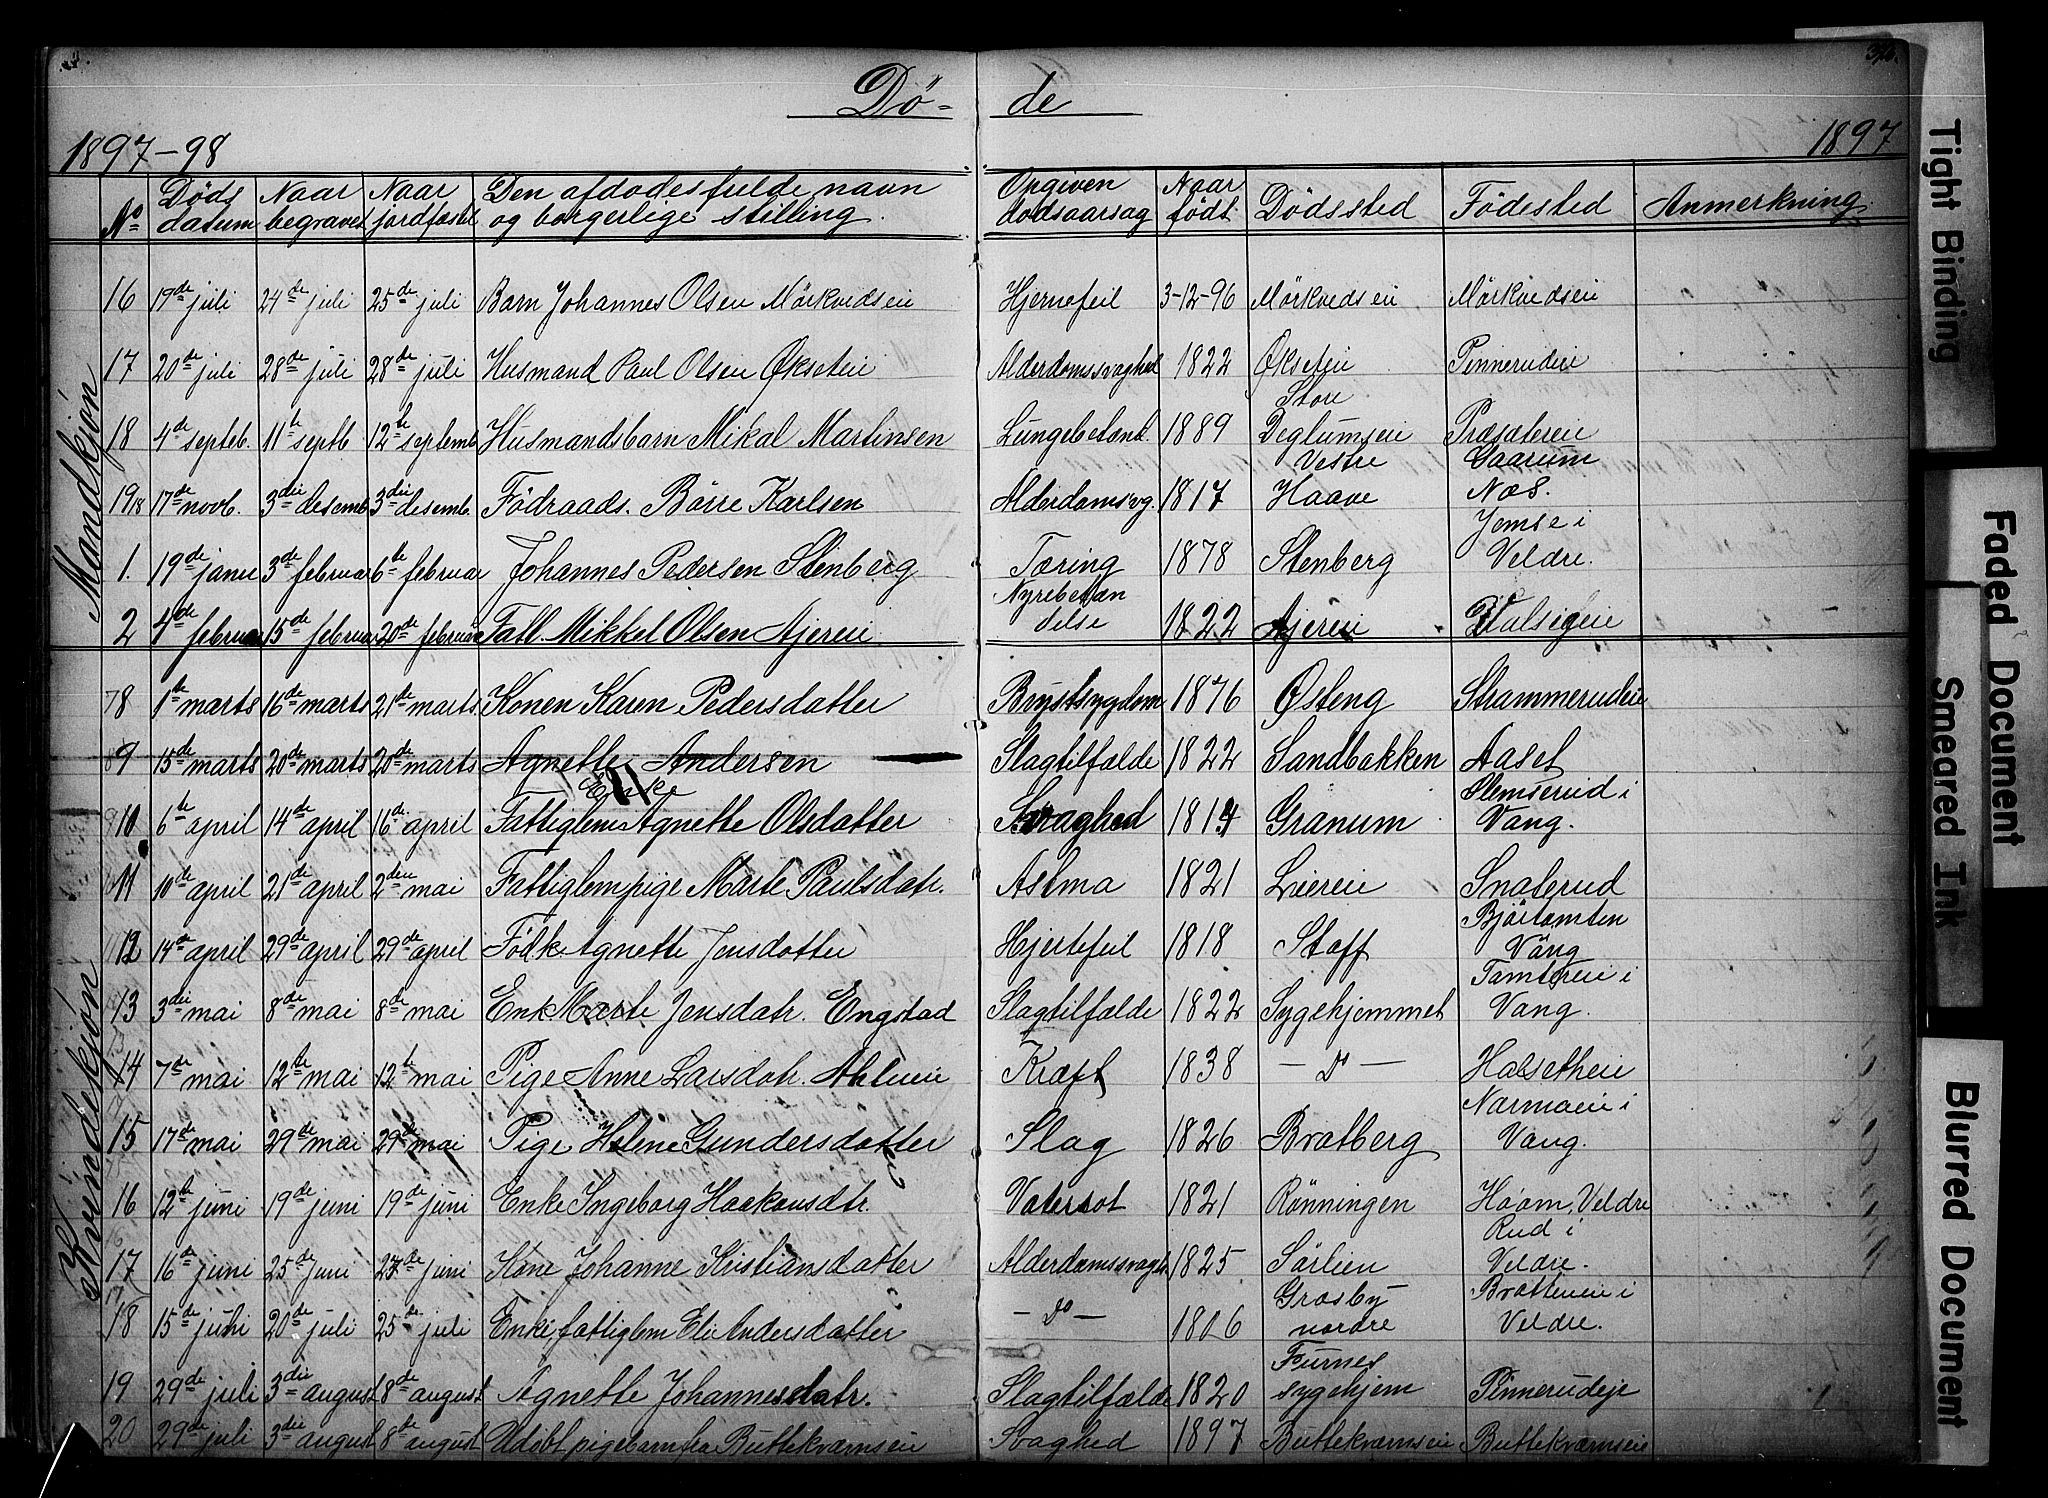 Dø- de
1897-98
1897
No Døds datum Naar begravet Naar jordfæstet Den afdødes fulde navn og borgerlige stilling. Opgiven dødsaarsag Naar født Dødssted Fødested Anmerkning
Mandkjøn
16 19de juli 24de juli 25de juli Barn Johannes Olsen Mörkvedseie Hjernefeil 3-12-96 Mörkvedseie Mörkvedseie
17 20de juli 28de juli 28de juli Husmand Paul Olsen Økseteie Alderdomssvaghed 1822 Økseteie Pinnerudeie
18 4de septeb. 11te septb 12te septemb Husmandsbarn Mikal Martinsen Lungebetænd. 1889 Store Deglumseie Præsætereie
19 17de novb. 3die desemb 3die desemb. Födraads. Börre Karlsen Alderdomsvg. 1817 Vestre Haave Gaarum Næs.
1. 19de janu 3de februar 6te februar Johannes Pedersen Stenberg Tæring 1878 Stenberg Jemse i Veldre.
2 4de februar 15de februar 20de februar Fatt. Mikkel Olsen Ajereie. Nyrebetæn delse 1822 Ajereie
Kvindekjøn
8 1te marts 16de marts 21de marts. Konen Karen Pedersdatter Brystsygdom 1876 Østeng Strammerudeie
9 15de marts 20de marts 20de marts Agnette Andersen Slagtilfælde 1822 Sandbakken Aaset
10 6te april 14de april 16de april Fattiglem Enke Agnette Olsdatter Svaghed 1814 Granum Slemserud i Vang.
11 10de april 21de april 2den mai Fattiglem pige Marte Paulsdatr. Astma 1821 Liereie Snaterud
12 14de april 29de april 29de april Födk. Agnette Jensdatter Hjertefeil 1818 Staff Bjørtomten Vang
13 3die mai 8de mai 8de mai Enk. Marte Jensdatr. Engstad Slagtilfælde 1822 Sygehjemmet Tomtereie i Vang.
14 7de mai 12te mai 12te mai Pige Anne Larsdatr. Ahlueie Kræft 1838 - Do - Halsetheie
15 17de mai 29de mai 29de mai Pige Helene Gundersdatter Slag 1826 Bratberg Narmoeie i Vang.
16 12te juni 19de juni 19de juni Enke Ingeborg Haakonsdtr. Vatersot 1821 Rönningen Hoom, Veldre
17 16de juni 25de juni 27de juni Kone Johanne Kristiansdatter Alderdomssvaghet 1825 Sörlien Rud i Veldre.
18 15de juni 20de juli 25de juli Enke, fattiglem Eli Andersdatter - Do - 1806 Grosby nordre Brotteneie i Veldre.
19 29de juli 3die august 8de august Agnette Johannesdatr. Slagtilfælde 1820 Furnes sygehjem Pinnerudeje
20 29de juli 3die august 8de august Udöbt pigebarn fra Buttekværnseie Svaghed 1897 Buttekværnseie Buttekværnseie
Tight Binding
Faded Document
Smeared Ink
Blurred Document